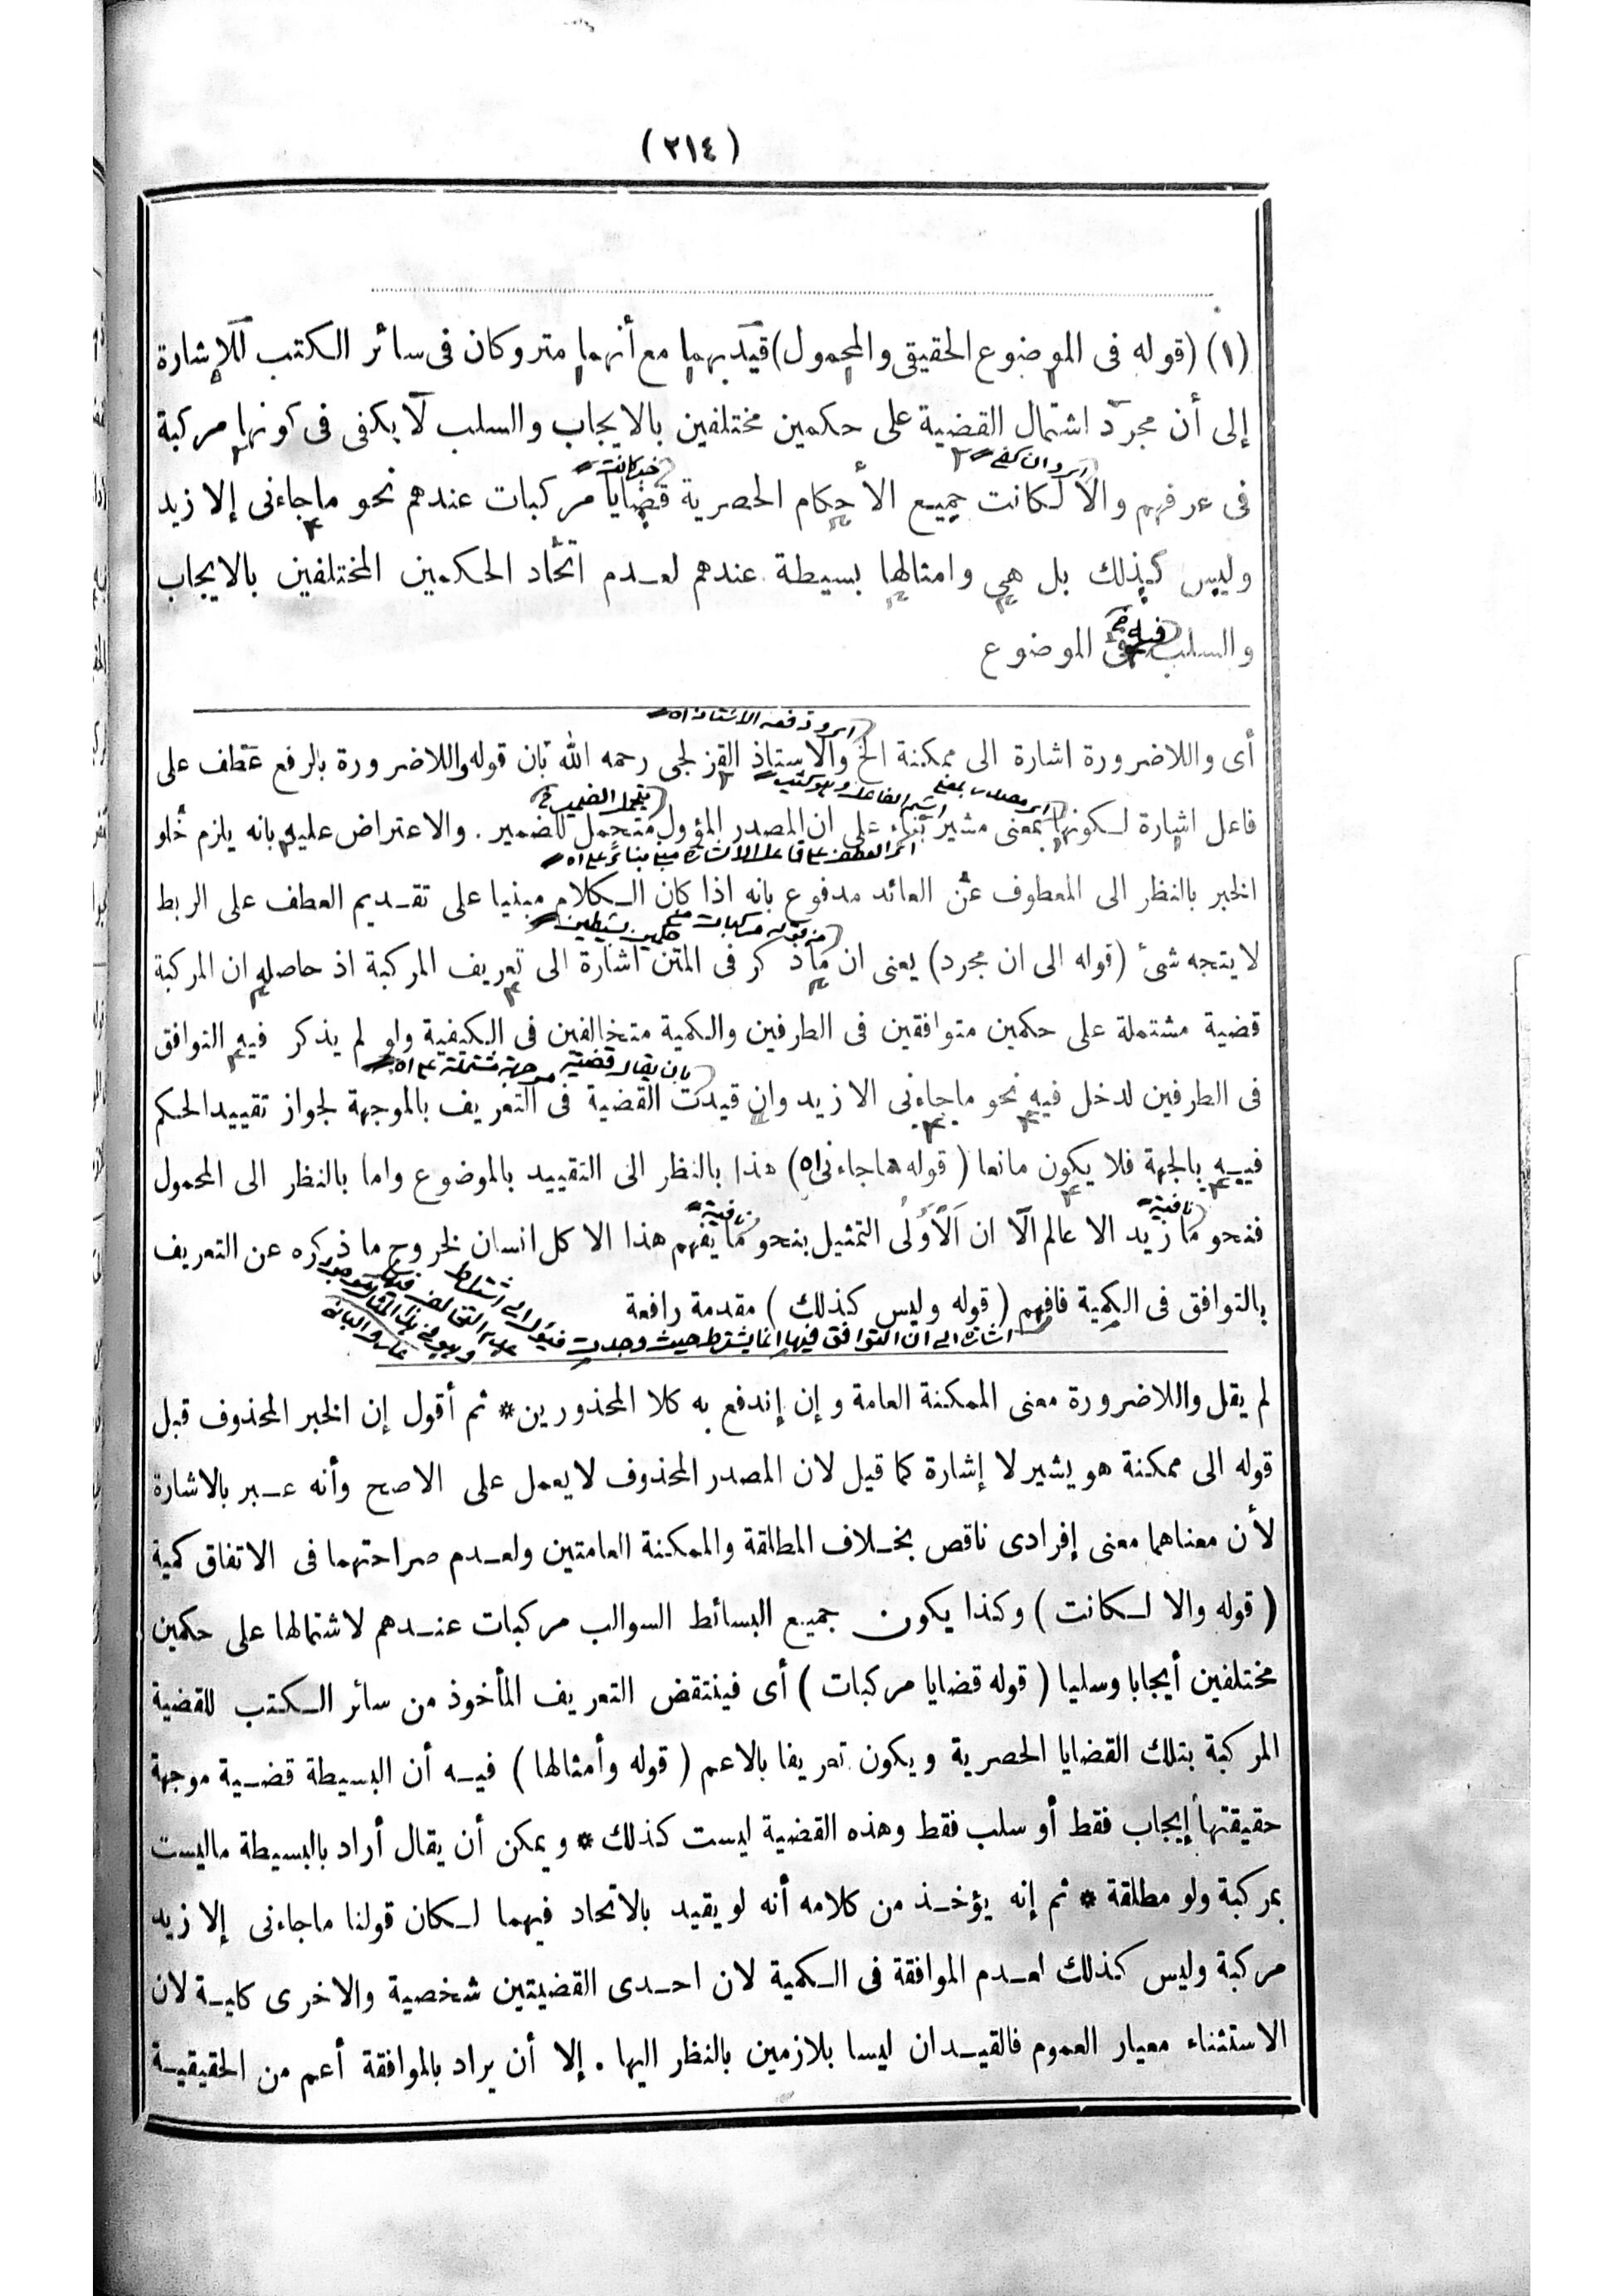 (٢١٤)
(١) (قوله فى الموضوع الحقيقى والمحمول) قيد بهما مع أنهما متروكان فى سائر الكتب للإشارة
إلى أن مجرد اشتمال القضية على حكمين مختلفين بالايجاب والسلب لا يكفى فى كونها مركبة
فى عرفهم والا لكانت جميع الأحكام الحصرية قضايا مركبات عندهم نحو ما جاءنى إلا زيد
وليس كذلك بل هى وامثالها بسيطة عندهم لعدم اتحاد الحكمين المختلفين بالايجاب
والسلب فى الموضوع
أى واللاضرورة اشارة الى ممكنة الخ والاستاذ القزلجى رحمه الله بان قوله واللاضرورة بالرفع عطف على
فاعل اشارة لكونها بمعنى مشير بناء على ان المصدر المؤول متحمل للضمير . والاعتراض عليه بانه يلزم خلو
الخبر بالنظر الى المعطوف عن العائد مدفوع بانه اذا كان الكلام مبنيا على تقديم العطف على الربط
لا يتجه شئ (قوله الى ان مجرد) يعنى ان ما ذكر فى المتن اشارة الى تعريف المركبة اذ حاصله ان المركبة
قضية مشتملة على حكمين متوافقين فى الطرفين والكمية متخالفين فى الكيفية ولو لم يذكر فيه التوافق
فى الطرفين لدخل فيه نحو ما جاءنى الا زيد وان قيدت القضية فى التعريف بالموجهة لجواز تقييد الحكم
فيه بالجهة فلا يكون مانعا (قوله ما جاءنى اه) هذا بالنظر الى التقييد بالموضوع واما بالنظر الى المحمول
فنحو ما زيد الا عالم الا ان الاولى التمثيل بنحو ما يفهم هذا الا كل انسان لخروج ما ذكره عن التعريف
بالتوافق فى الكمية فافهم (قوله وليس كذلك) مقدمة رافعة
اشارة الى ان التوافق فيها انما يشترط حيث وجدت
لم يقل واللاضرورة معنى الممكنة العامة وإن إندفع به كلا المحذورين * ثم أقول إن الخبر المحذوف قبل
قوله الى ممكنة هو يشير لا إشارة كما قيل لان المصدر المحذوف لا يعمل على الاصح وأنه عبر بالاشارة
لأن معناهما معنى إفرادى ناقص بخلاف المطلقة والممكنة العامتين ولعدم صراحتهما فى الاتفاق كمية
(قوله والا لكانت) وكذا يكون جميع البسائط السوالب مركبات عندهم لاشتمالها على حكمين
مختلفين أيجابا وسلبا (قوله قضايا مركبات) أى فينتقض التعريف المأخوذ من سائر الكتب للقضية
المركبة بتلك القضايا الحصرية ويكون تعريفا بالاعم (قوله وأمثالها) فيه أن البسيطة قضية موجهة
حقيقتها إيجاب فقط أو سلب فقط وهذه القضية ليست كذلك * ويمكن أن يقال أراد بالبسيطة ماليست
بمركبة ولو مطلقة * ثم إنه يؤخذ من كلامه أنه لو يقيد بالاتحاد فيهما لكان قولنا ماجاءنى إلا زيد
مركبة وليس كذلك لعدم الموافقة فى الكمية لان احدى القضيتين شخصية والاخرى كلية لان
الاستثناء معيار العموم فالقيدان ليسا بلازمين بالنظر اليها . إلا أن يراد بالموافقة أعم من الحقيقية